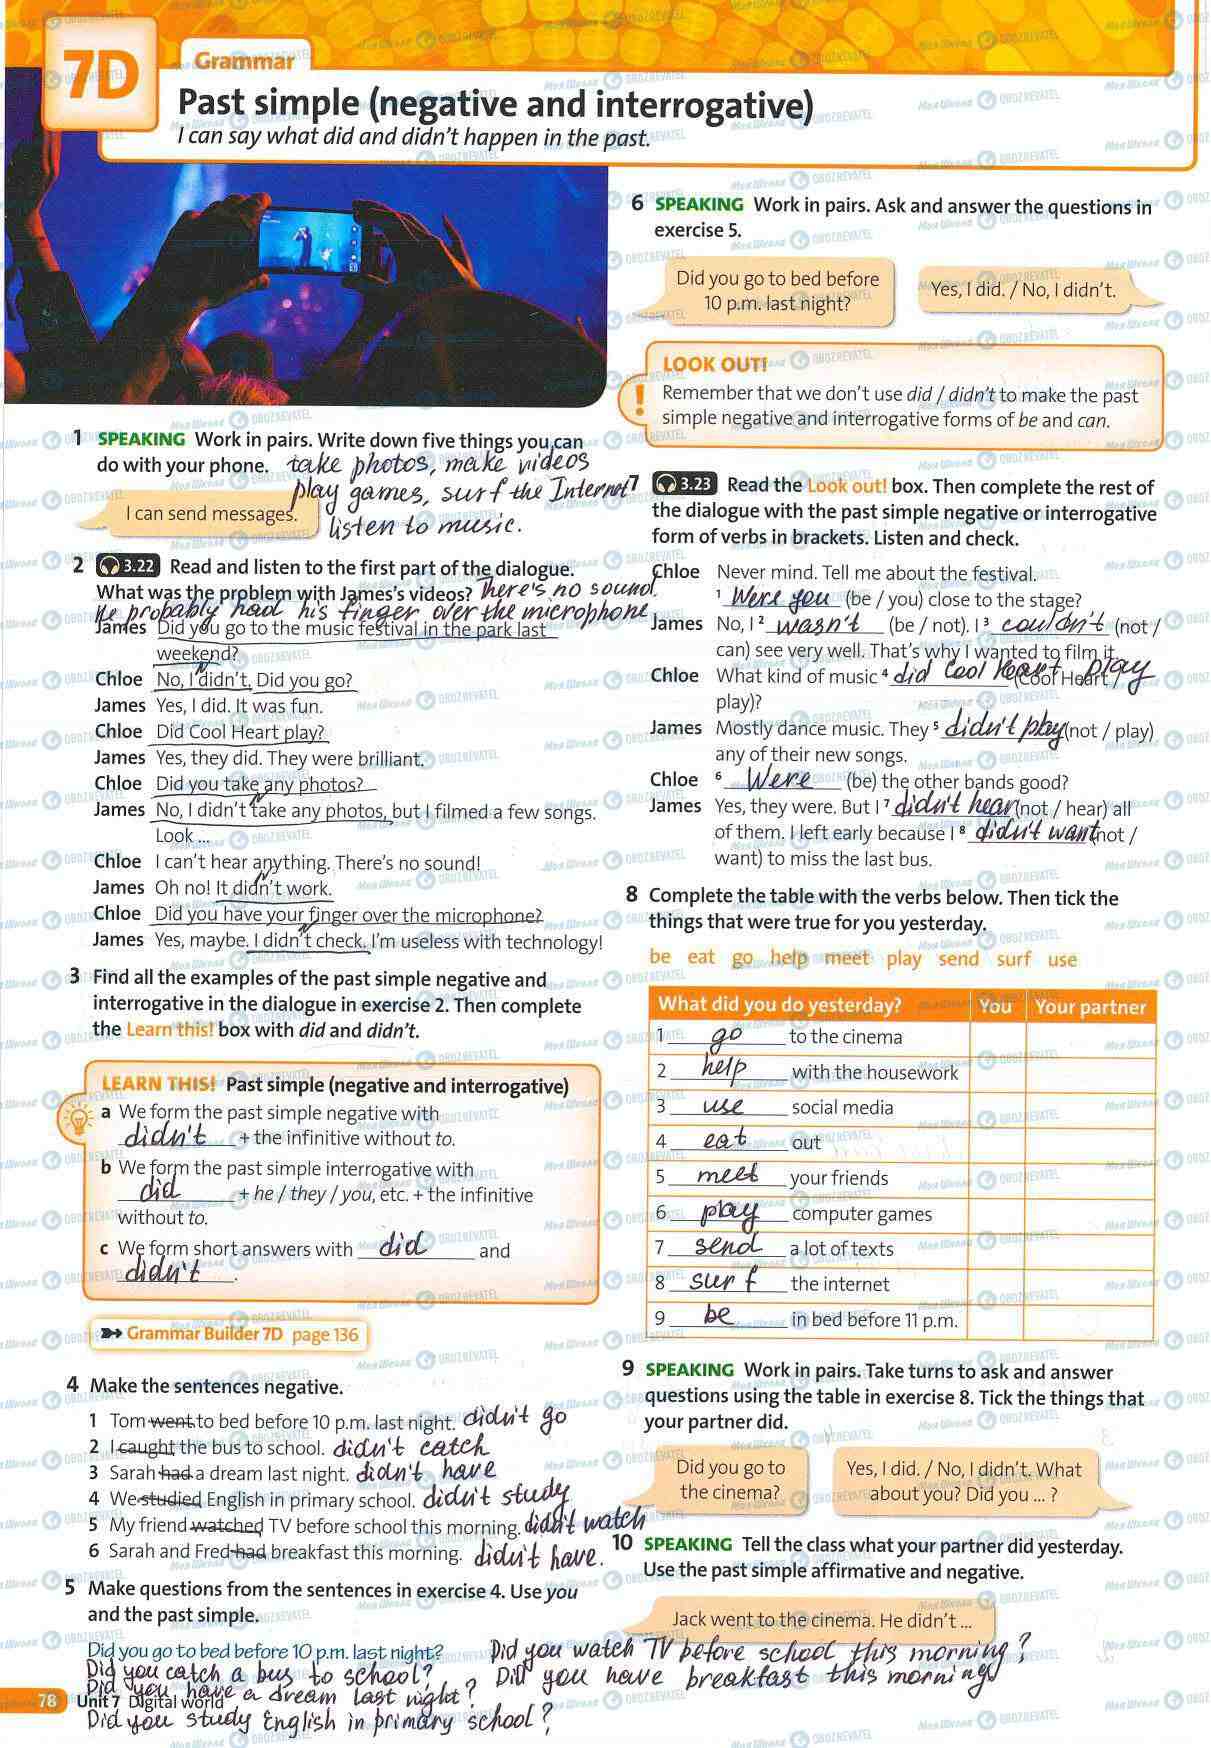 7D
Grammar
Past simple (negative and interrogative)
I can say what did and didn't happen in the past.
1 SPEAKING Work in pairs. Write down five things you can
do with your phone. take photos, make videos
play games, surf the Internet
I can send messages.
listen to music.
2 3.22 Read and listen to the first part of the dialogue.
What was the problem with James's videos? There's no sound.
He probably had his finger over the microphone
James Did you go to the music festival in the park last
weekend?
Chloe No, I didn't. Did you go?
James Yes, I did. It was fun.
Chloe Did Cool Heart play?
James Yes, they did. They were brilliant.
Chloe Did you take any photos?
James No, I didn't take any photos, but I filmed a few songs.
Look ...
Chloe I can't hear anything. There's no sound!
James Oh no! It didn't work.
Chloe Did you have your finger over the microphone?
James Yes, maybe. I didn't check. I'm useless with technology!
3 Find all the examples of the past simple negative and
interrogative in the dialogue in exercise 2. Then complete
the Learn this! box with did and didn't.
LEARN THIS! Past simple (negative and interrogative)
a We form the past simple negative with
didn't + the infinitive without to.
b We form the past simple interrogative with
did + he / they / you, etc. + the infinitive
without to.
c We form short answers with did and
didn't.
Grammar Builder 7D page 136
4 Make the sentences negative.
1 Tom went to bed before 10 p.m. last night. didn't go
2 I caught the bus to school. didn't catch
3 Sarah had a dream last night. didn't have
4 We studied English in primary school. didn't study
5 My friend watched TV before school this morning. didn't watch
6 Sarah and Fred had breakfast this morning. didn't have.
5 Make questions from the sentences in exercise 4. Use you
and the past simple.
Did you go to bed before 10 p.m. last night?
Did you catch a bus to school?
Did you have a dream last night?
Did you study English in primary school?
Did you watch TV before school this morning?
Did you have breakfast this morning
78 Unit 7 Digital world
6 SPEAKING Work in pairs. Ask and answer the questions in
exercise 5.
Did you go to bed before
10 p.m. last night?
Yes, I did. / No, I didn't.
LOOK OUT!
! Remember that we don't use did / didn't to make the past
simple negative and interrogative forms of be and can.
7 3.23 Read the Look out! box. Then complete the rest of
the dialogue with the past simple negative or interrogative
form of verbs in brackets. Listen and check.
Chloe Never mind. Tell me about the festival.
1 Were you (be / you) close to the stage?
James No, I 2 wasn't (be / not). I 3 couldn't (not /
can) see very well. That's why I wanted to film it.
Chloe What kind of music 4 did Cool Heart play (Cool Heart /
play)?
James Mostly dance music. They 5 didn't play (not / play)
any of their new songs.
Chloe 6 Were (be) the other bands good?
James Yes, they were. But I 7 didn't hear (not / hear) all
of them. I left early because I 8 didn't want (not /
want) to miss the last bus.
8 Complete the table with the verbs below. Then tick the
things that were true for you yesterday.
be eat go help meet play send surf use
What did you do yesterday? You Your partner
1 go to the cinema
2 help with the housework
3 use social media
4 eat out
5 meet your friends
6 play computer games
7 send a lot of texts
8 surf the internet
9 be in bed before 11 p.m.
9 SPEAKING Work in pairs. Take turns to ask and answer
questions using the table in exercise 8. Tick the things that
your partner did.
Did you go to
the cinema?
Yes, I did. / No, I didn't. What
about you? Did you ... ?
10 SPEAKING Tell the class what your partner did yesterday.
Use the past simple affirmative and negative.
Jack went to the cinema. He didn't ...
Моя Школа OBOZREVATEL